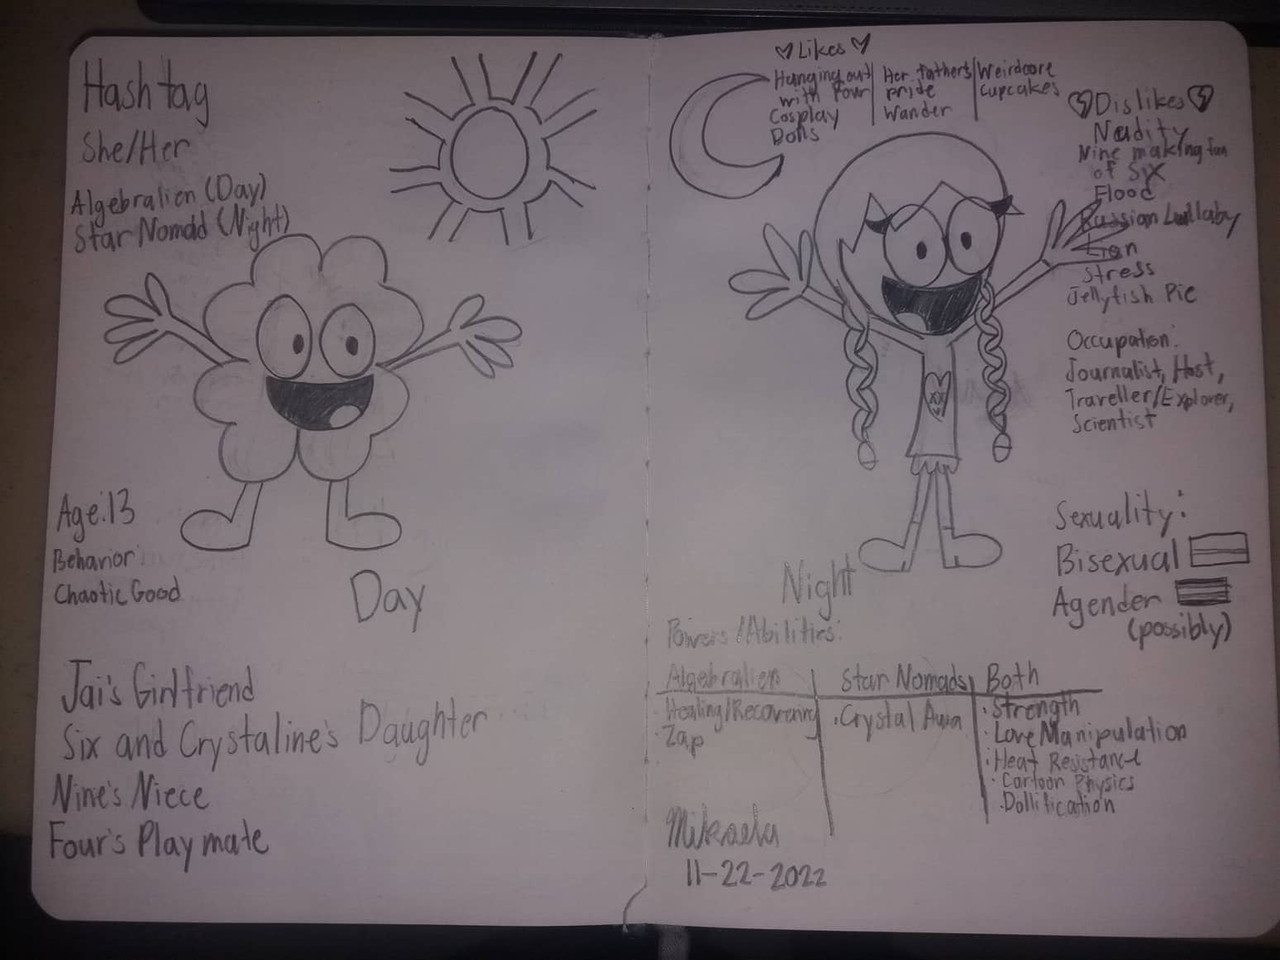 Hashtag
She/Her
Algebralien (Day)
Star Nomad (Night)
Age:13
Behavior:
Chaotic Good
Day
Jai's Girlfriend
Six and Crystaline's Daughter
Nine's Niece
Four's Playmate
Likes
Hanging out
with Four
Cosplay
Dolls
Her fathers
pride
Wander
Weirdcore
Cupcakes
Dislikes
Nudity
Nine making fun
of Six
Flood
Russian Lullaby
Stress
Jellyfish Pie
Occupation:
Journalist, Host,
Traveller/Explorer,
Scientist
Sexuality:
Bisexual
Agender
(possibly)
Night
Powers/Abilities:
Algebralien
Healing/Recovering
Zap
Star Nomads
· Crystal Aura
Both
· Strength
· Love Manipulation
· Heat Resistance
· Cartoon Physics
· Dollification
Mikaela
11-22-2022
XX